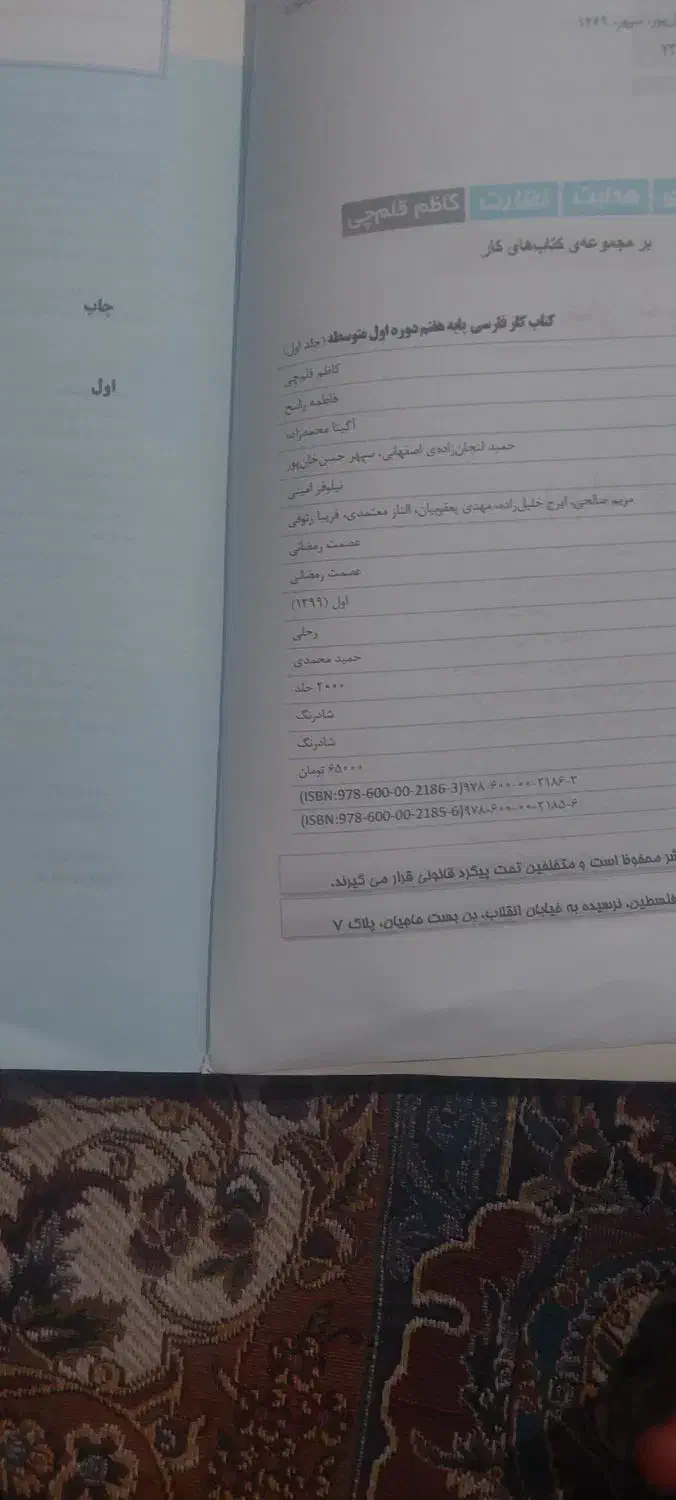 پور، سپهر، ۱۳۶۹
هدایت نظارت کاظم قلم‌چی
بر مجموعه‌ی کتاب‌های کار
کتاب کار فارسی پایه هفتم دوره اول متوسطه (جلد اول)
کاظم قلم‌چی
فاطمه راسخ
آگیتا محمدزاده
حمید لنجان‌زاده‌ی اصفهانی، سپهر حسن‌خان‌پور
نیلوفر امینی
مریم صالحی، ایرج خلیل‌زاده، مهدی یعقوبیان، الناز معتمدی، فریبا رئوفی
عصمت رمضانی
عصمت رمضانی
اول (۱۳۹۹)
رحلی
حمید محمدی
۲۰۰۰ جلد
شادرنگ
شادرنگ
۶۵۰۰۰ تومان
(ISBN:978-600-00-2186-3)۹۷۸-۶۰۰-۰۰-۲۱۸۶-۳
(ISBN:978-600-00-2185-6)۹۷۸-۶۰۰-۰۰-۲۱۸۵-۶
محفوظ است و متخلفین تحت پیگرد قانونی قرار می گیرند.
فلسطین، نرسیده به خیابان انقلاب، بن بست حاجیان، پلاک ۷
چاپ
اول